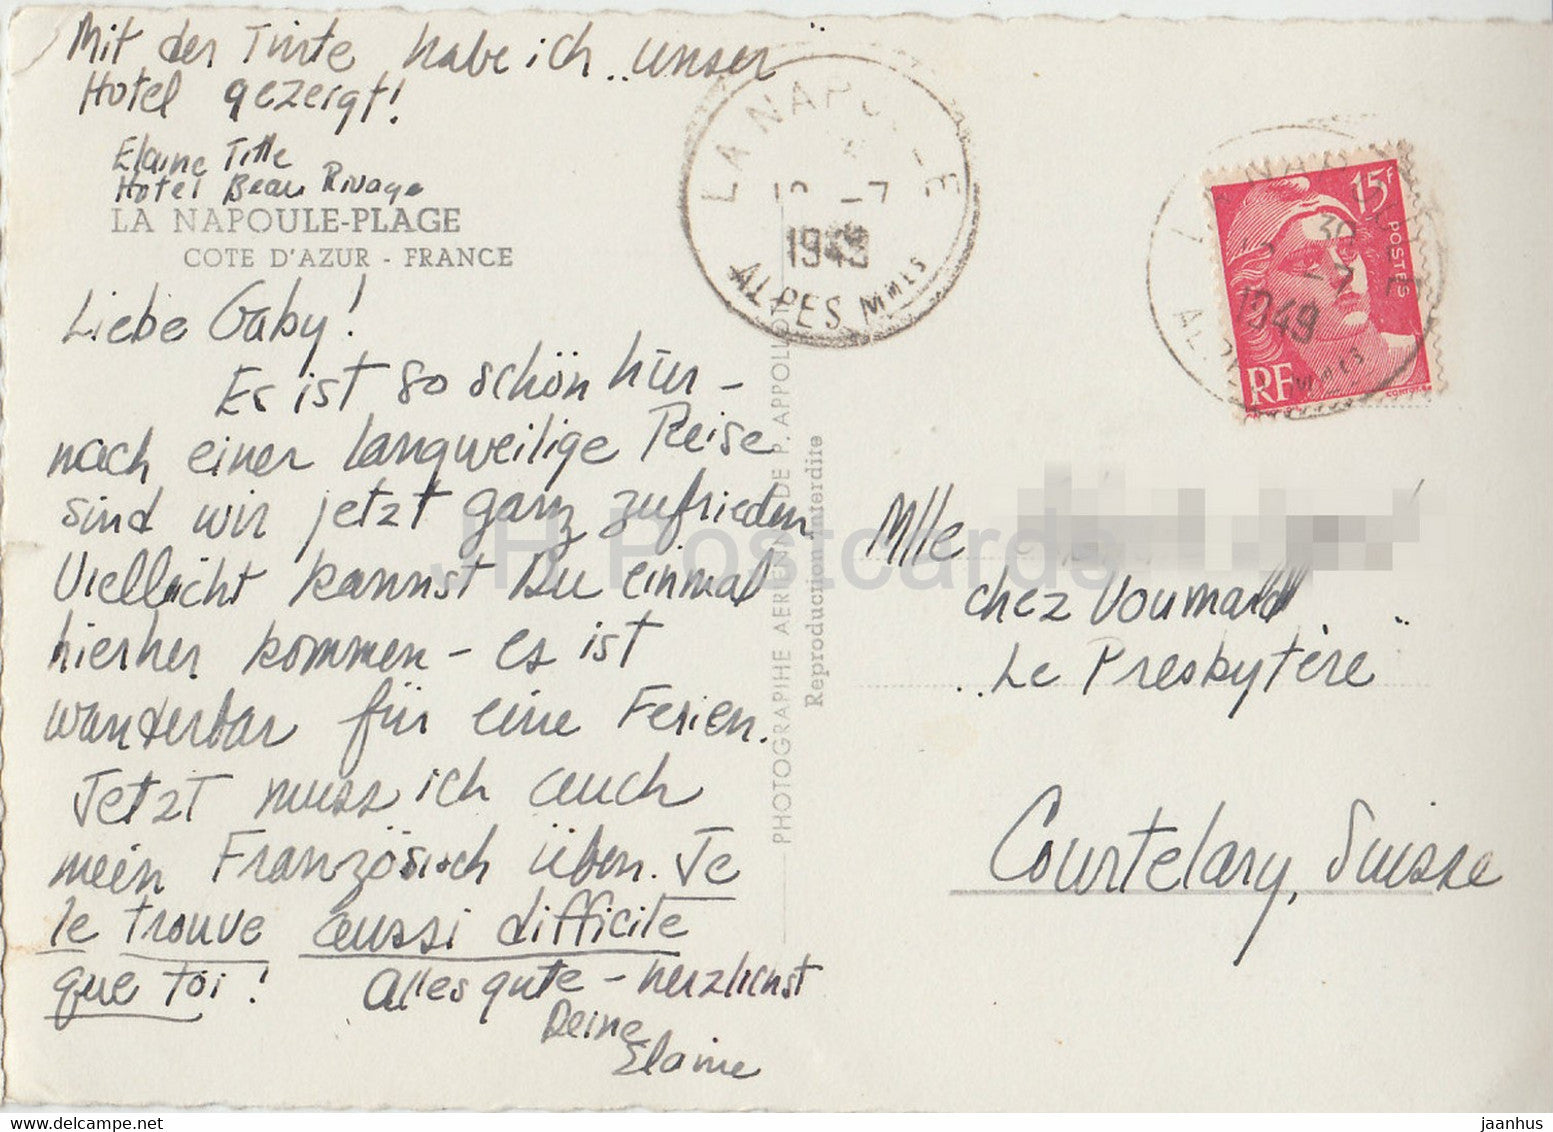 Mit der Tinte habe ich unser
Hotel gezeigt!
Elaine Title
Hotel Beau Rivage
LA NAPOULE-PLAGE
COTE D'AZUR - FRANCE
Liebe Gaby!
Es ist so schön hier -
nach einer langweilige Reise
sind wir jetzt ganz zufrieden
Viellacht kannst Du einmal
hierher kommen - es ist
wanderbar für eine Ferien.
Jetzt muss ich auch
mein Französisch üben. Je
le trouve aussi difficile
que toi! Alles gute - herzlichst
Deine
Elaine
LA NAPOULE
12 -7
1949
ALPES Mmes
PHOTOGRAPHIE AERIENNE DE P. APPOLLOT
Reproduction Interdite
15F
POSTES
RF
1949
Mlle
chez Voumard
Le Presbytère
Courtelary, Suisse
JH Postcards
jaanhus